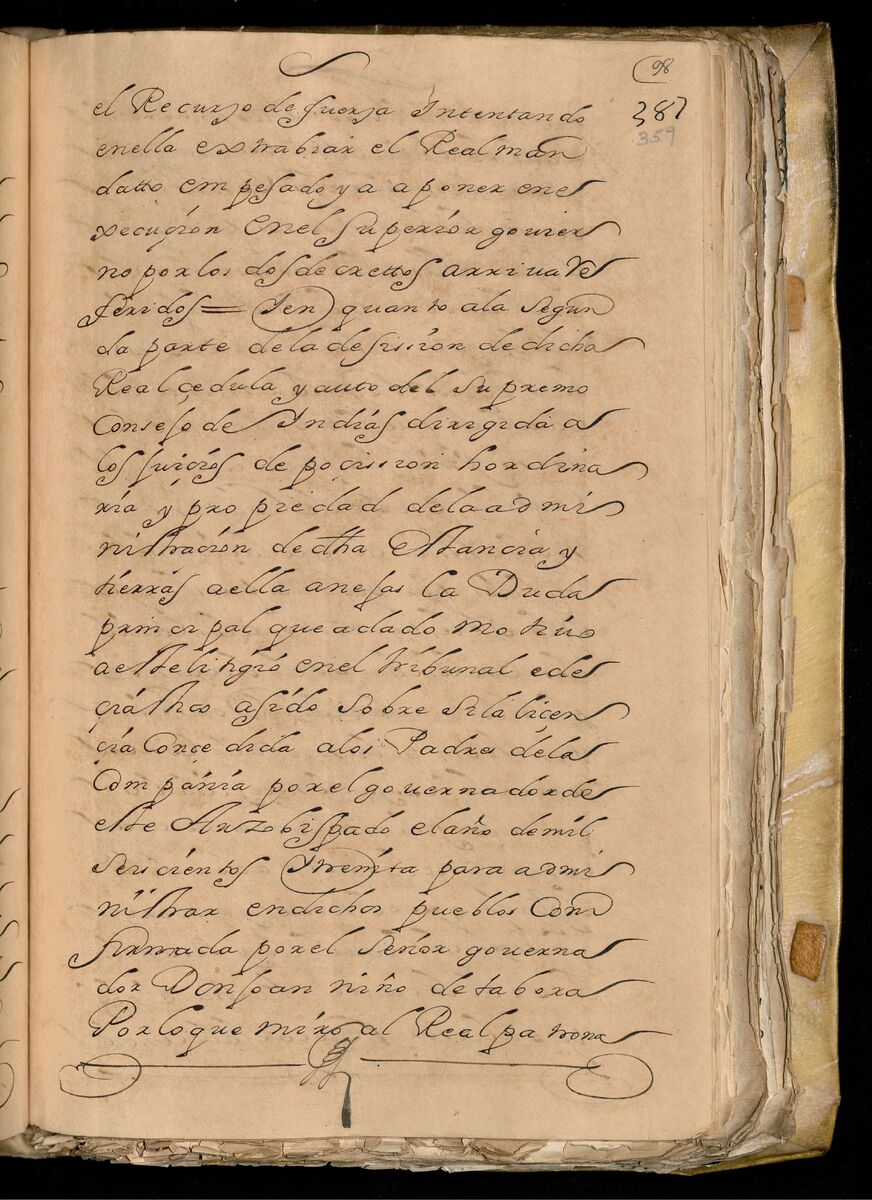 98
387
359
el Recurso de fuersa Intentando
enella extrabiar el Real man
datto empesado y a a poner en e
xecuçion en el Superior govier
no por los dos decrettos arriva Re
feridos = Y en quanto ala segun
da parte de la desission de dicha
Real çedula y auto del Supremo
Consejo de Indias dirigida a
los juiçios de pocission hordina
ria y propiedad dela admi
nistraçion de dha Estancia y
tierras aella anesas la Duda
principal que adado motivo
a este litigio en el tribunal ecle
çiastico asido sobre si la liçen
çia Concedida alos Padres dela
Compania por el governador de
este Arzobispado el año de mil
seiscientos Y treinta para admi
nistrar en dichos pueblos Con
firmada por el Señor governa
dor Don Joan niño de tabora
Por loque miro al Real patrona